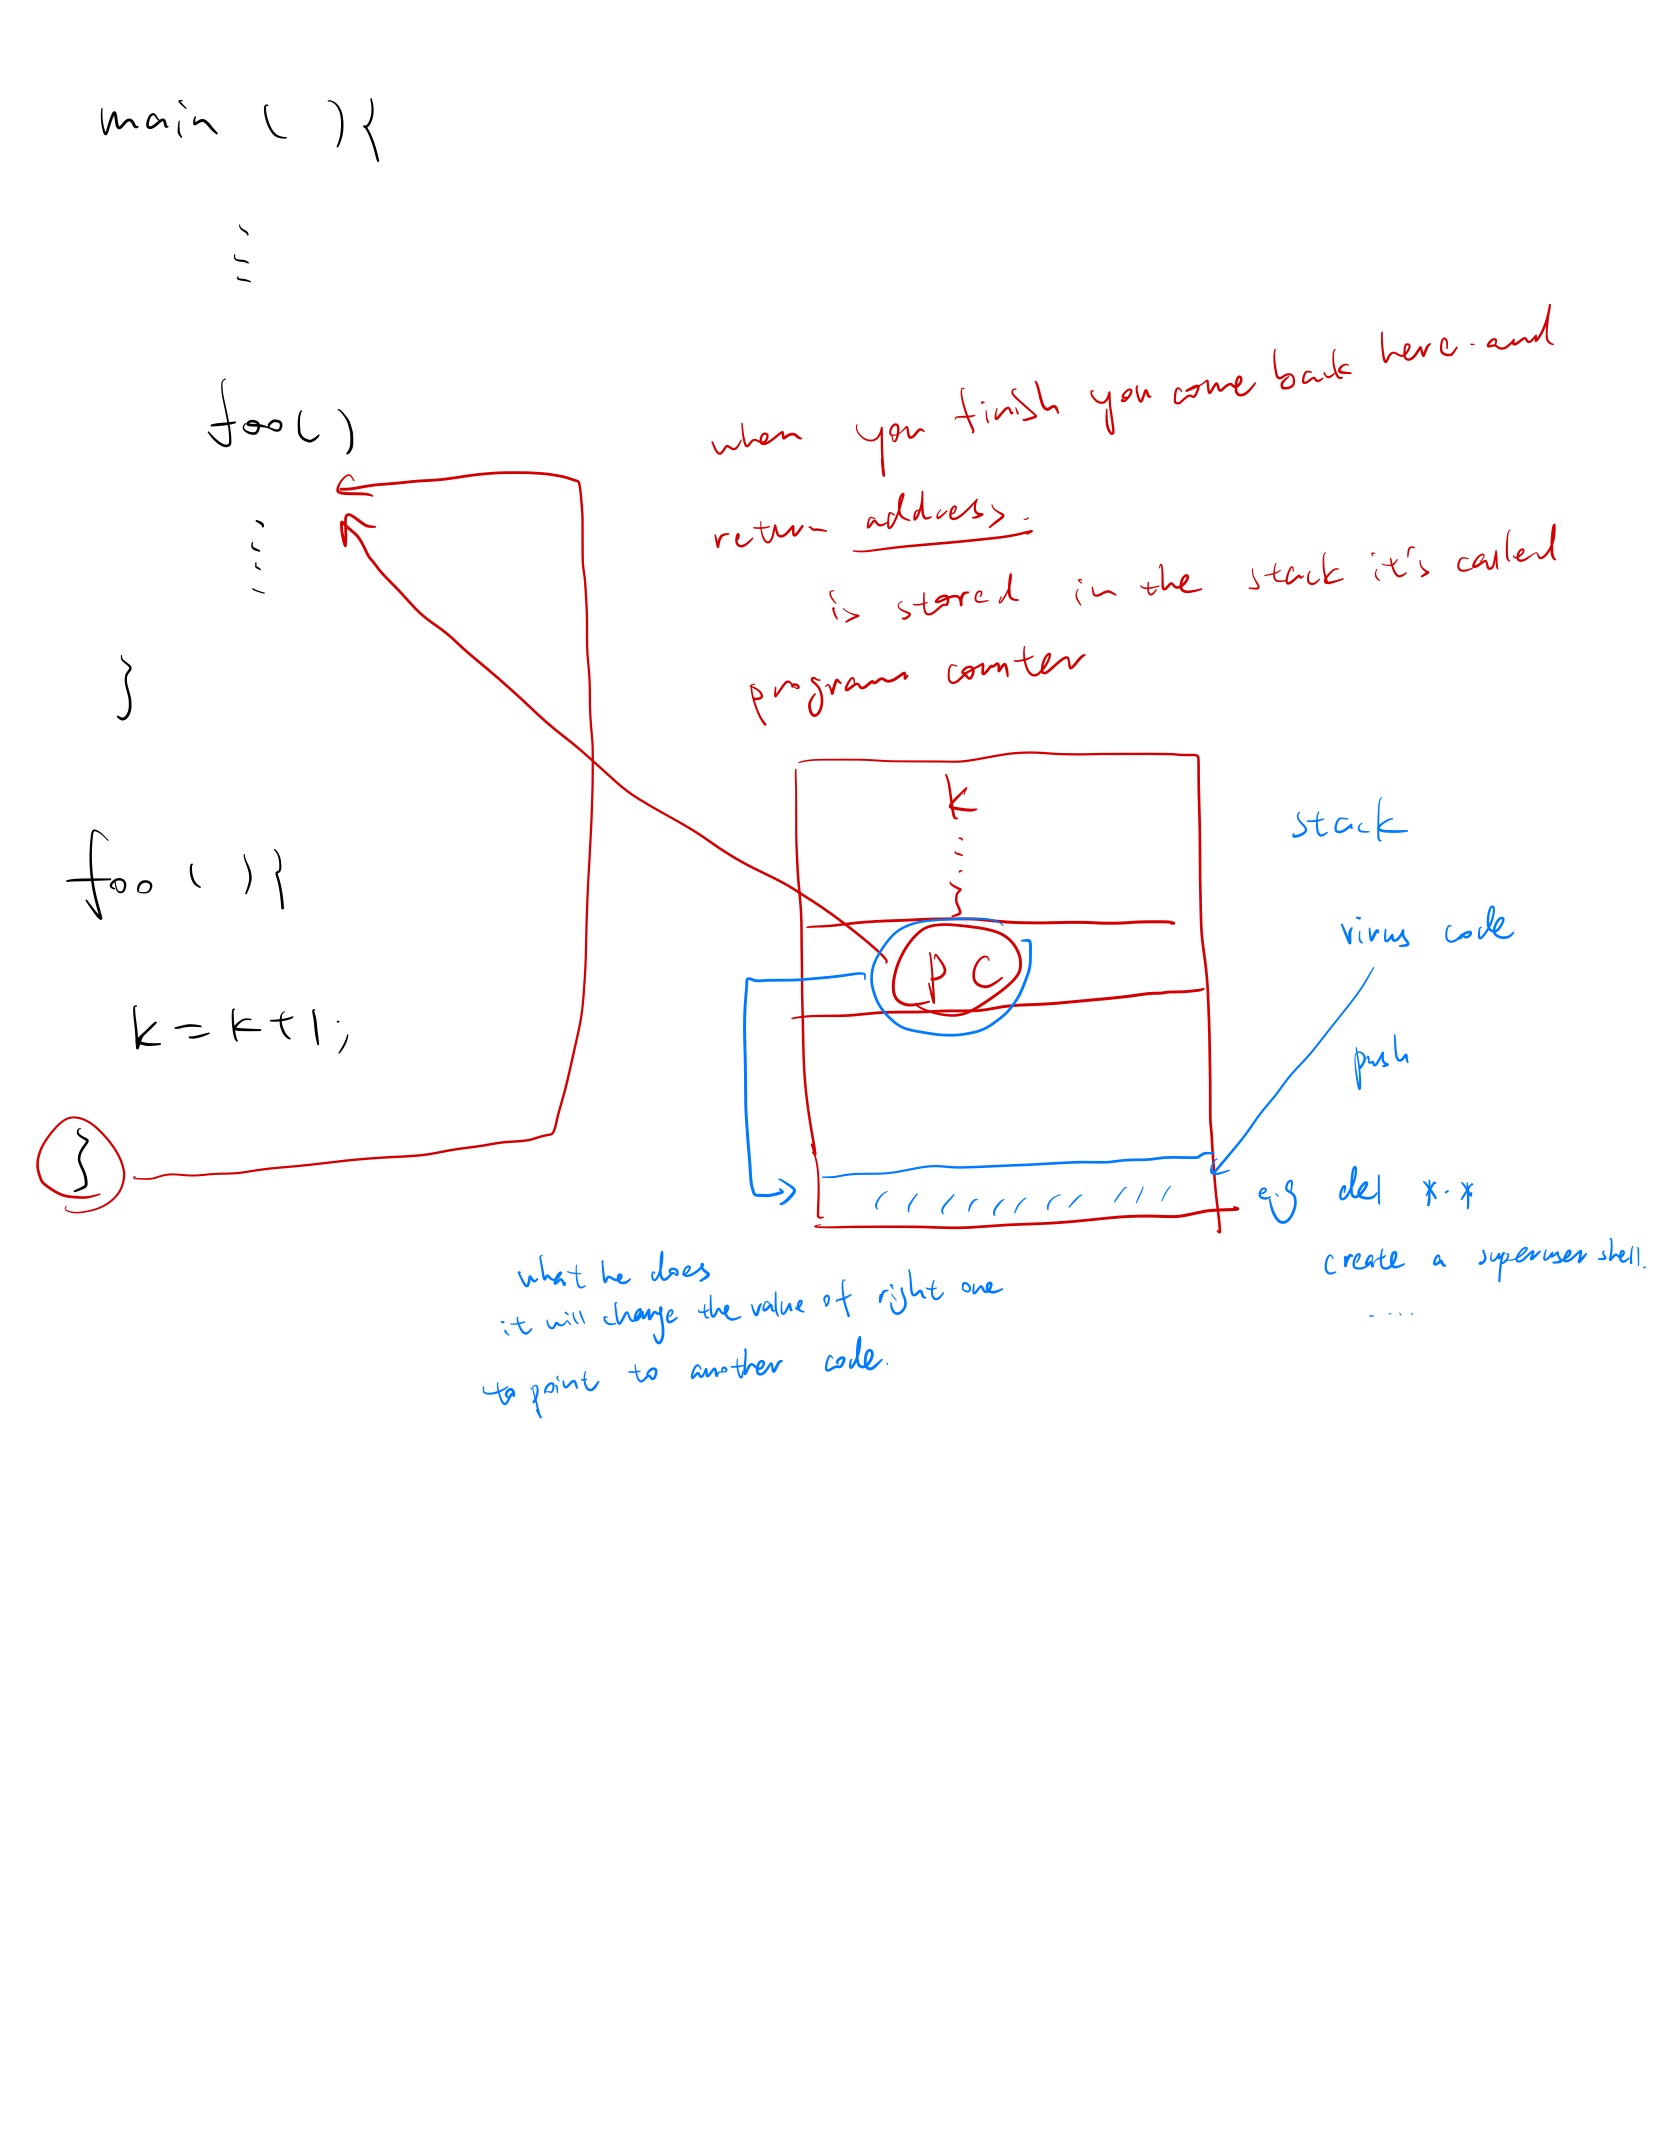 main ( ) {
foo ( )
}
foo ( ) {
k = k + 1 ;
}
when you finish you come back here. and
return address.
is stored in the stack it's called
program counter
k
PC
stack
virus code
push
e.g del *.*
create a superuser shell.
.....
what he does
it will change the value of right one
to point to another code.